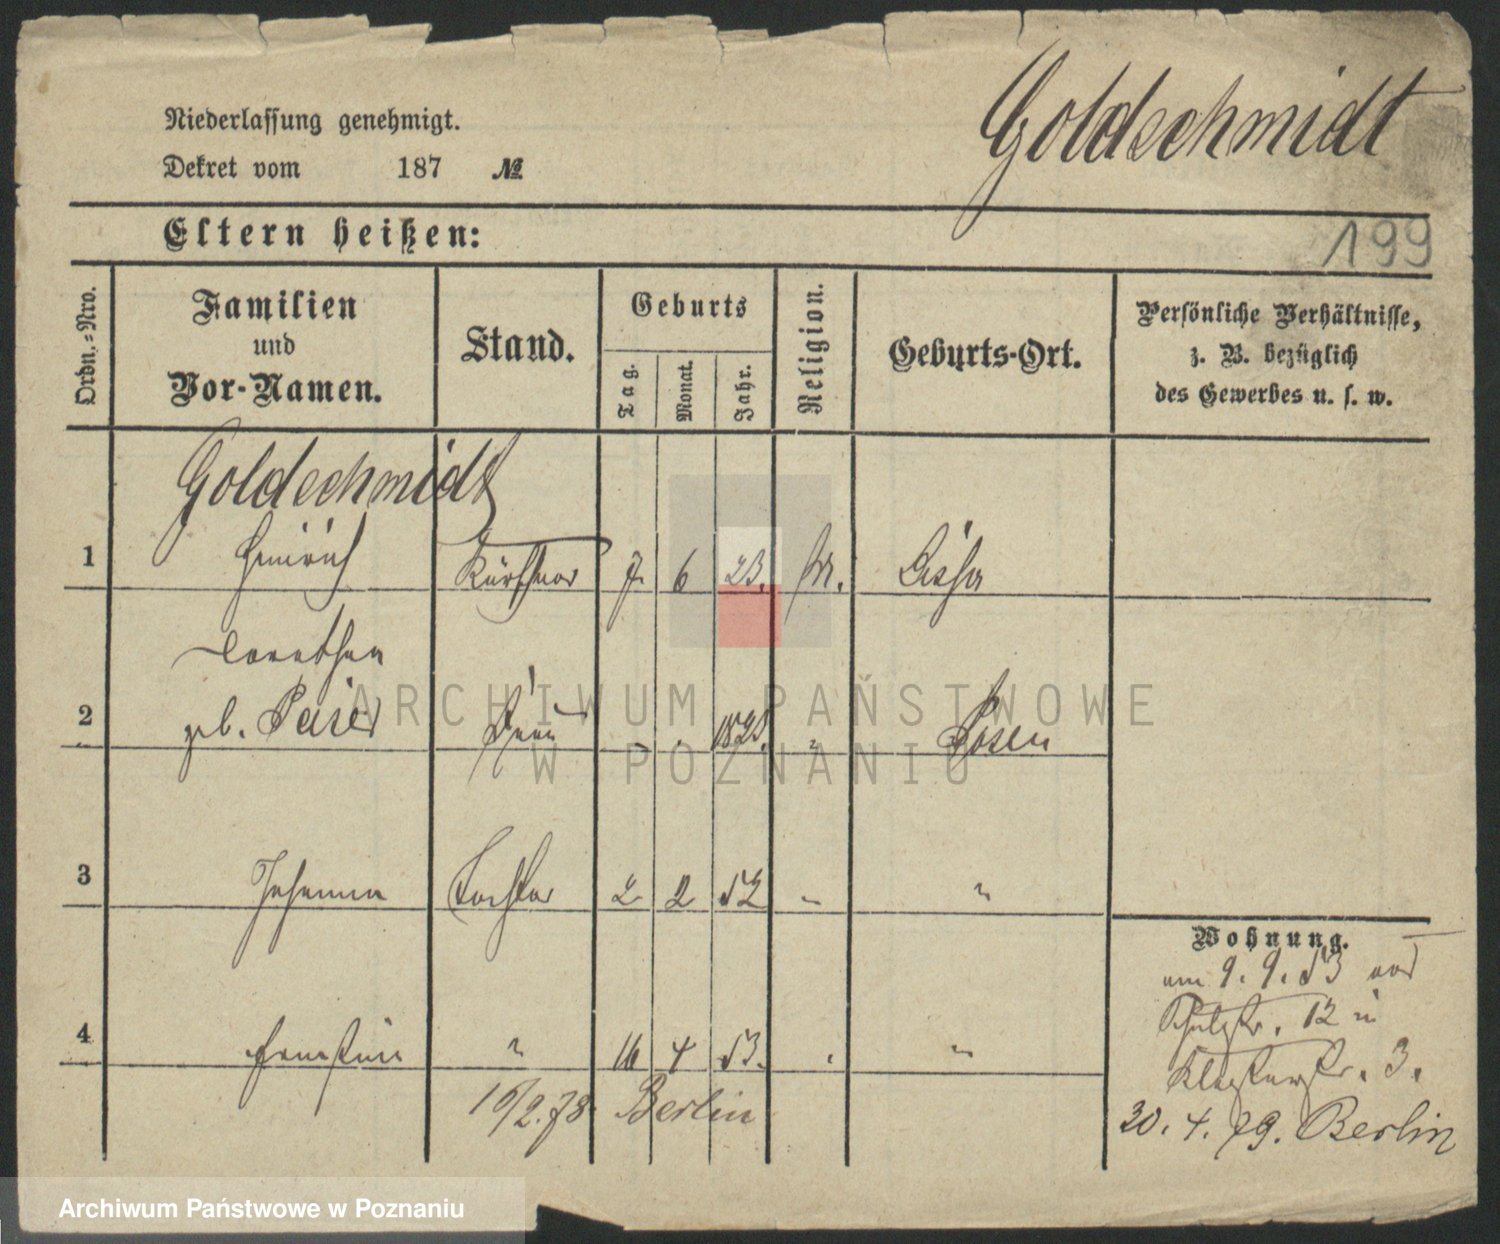 Niederlassung genehmigt.
Dekret vom 187 №
Goldschmidt
Eltern heißen:
199
Ordn.-Nro.
Familien
und
Vor-Namen.
Stand.
Geburts
Tag.
Monat.
Jahr.
Religion.
Geburts-Ort.
Persönliche Verhältnisse,
z. B. bezüglich
des Gewerbes u. s. w.
Goldschmidt
1 Heinrich Kürschner 7. 6 23. M. Lissa
Dorothea
2 geb. Peiser Frau - . 1828. " Posen
3 Johanna Tochter 2 2 52 " "
4 Ernestine " 16 4 53. . "
16/2.78 Berlin
Wohnung.
am 9. 9. 53 von
12 in
Klosterstr. 3.
30. 4. 79. Berlin
ARCHIWUM PAŃSTWOWE
W POZNANIU
Archiwum Państwowe w Poznaniu